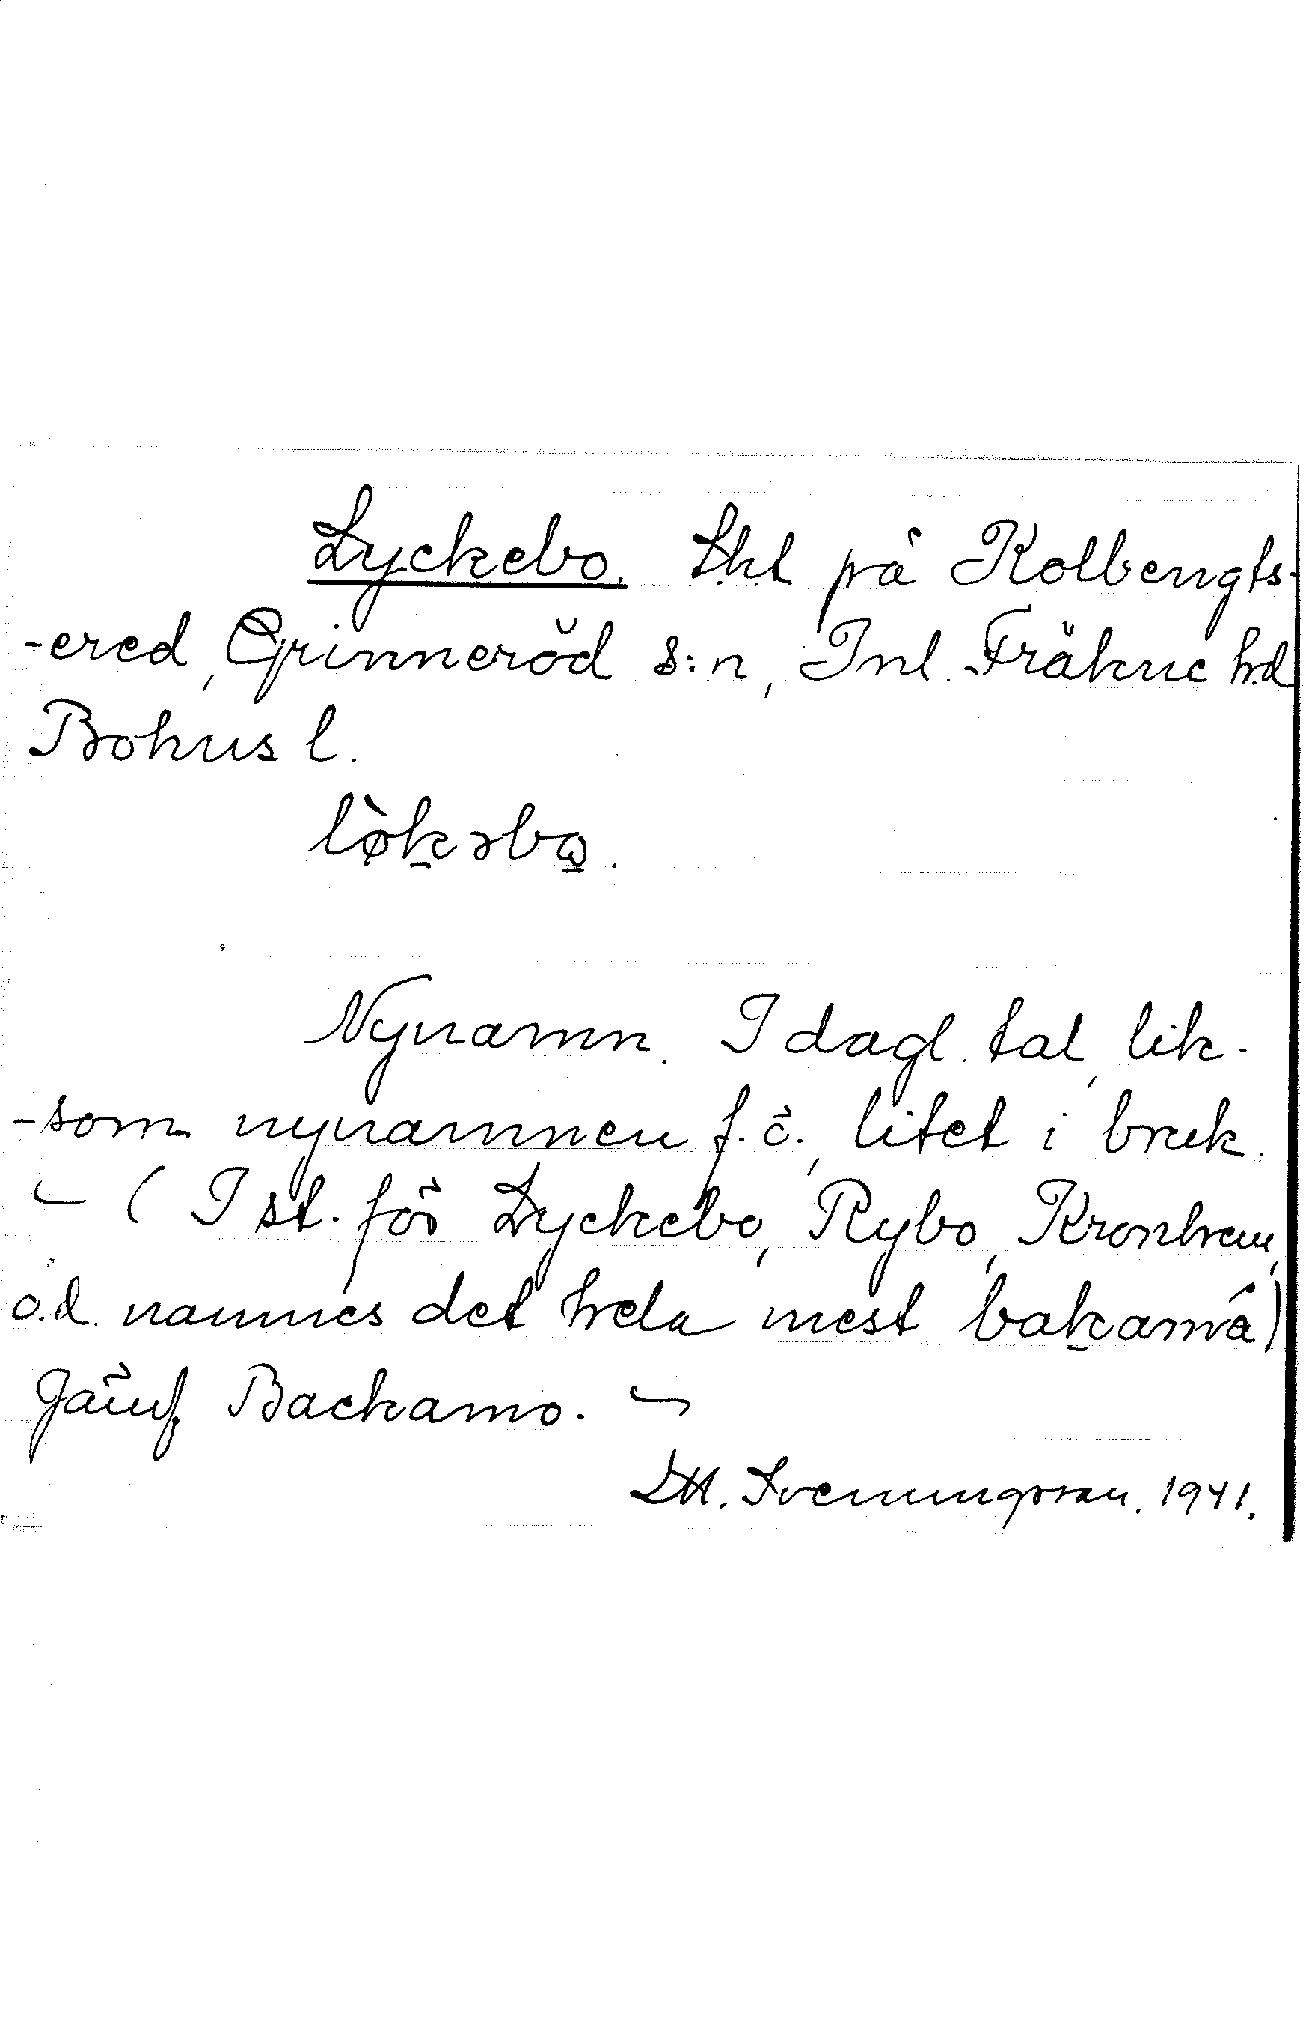 Lyckebo. Skt på Kolbengts-
-ered, Grinneröd s:n, Inl. Fräkne hd
Bohus l.
lø̀kəbω.
Nynamn. I dagl. tal, lik-
-som nynamnen f. ö., litet i bruk.
– ( I st. för Lyckebo, Rybo, Kronhem,
o.d. namnes det hela mest bakamå)
Jämf. Backamo. –
D.H. Sveningsson. 1941.